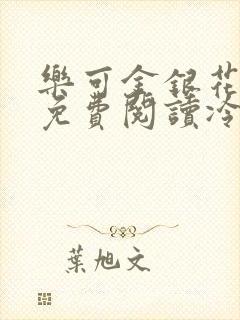 樂可金銀花
免費閱讀冷
葉旭文